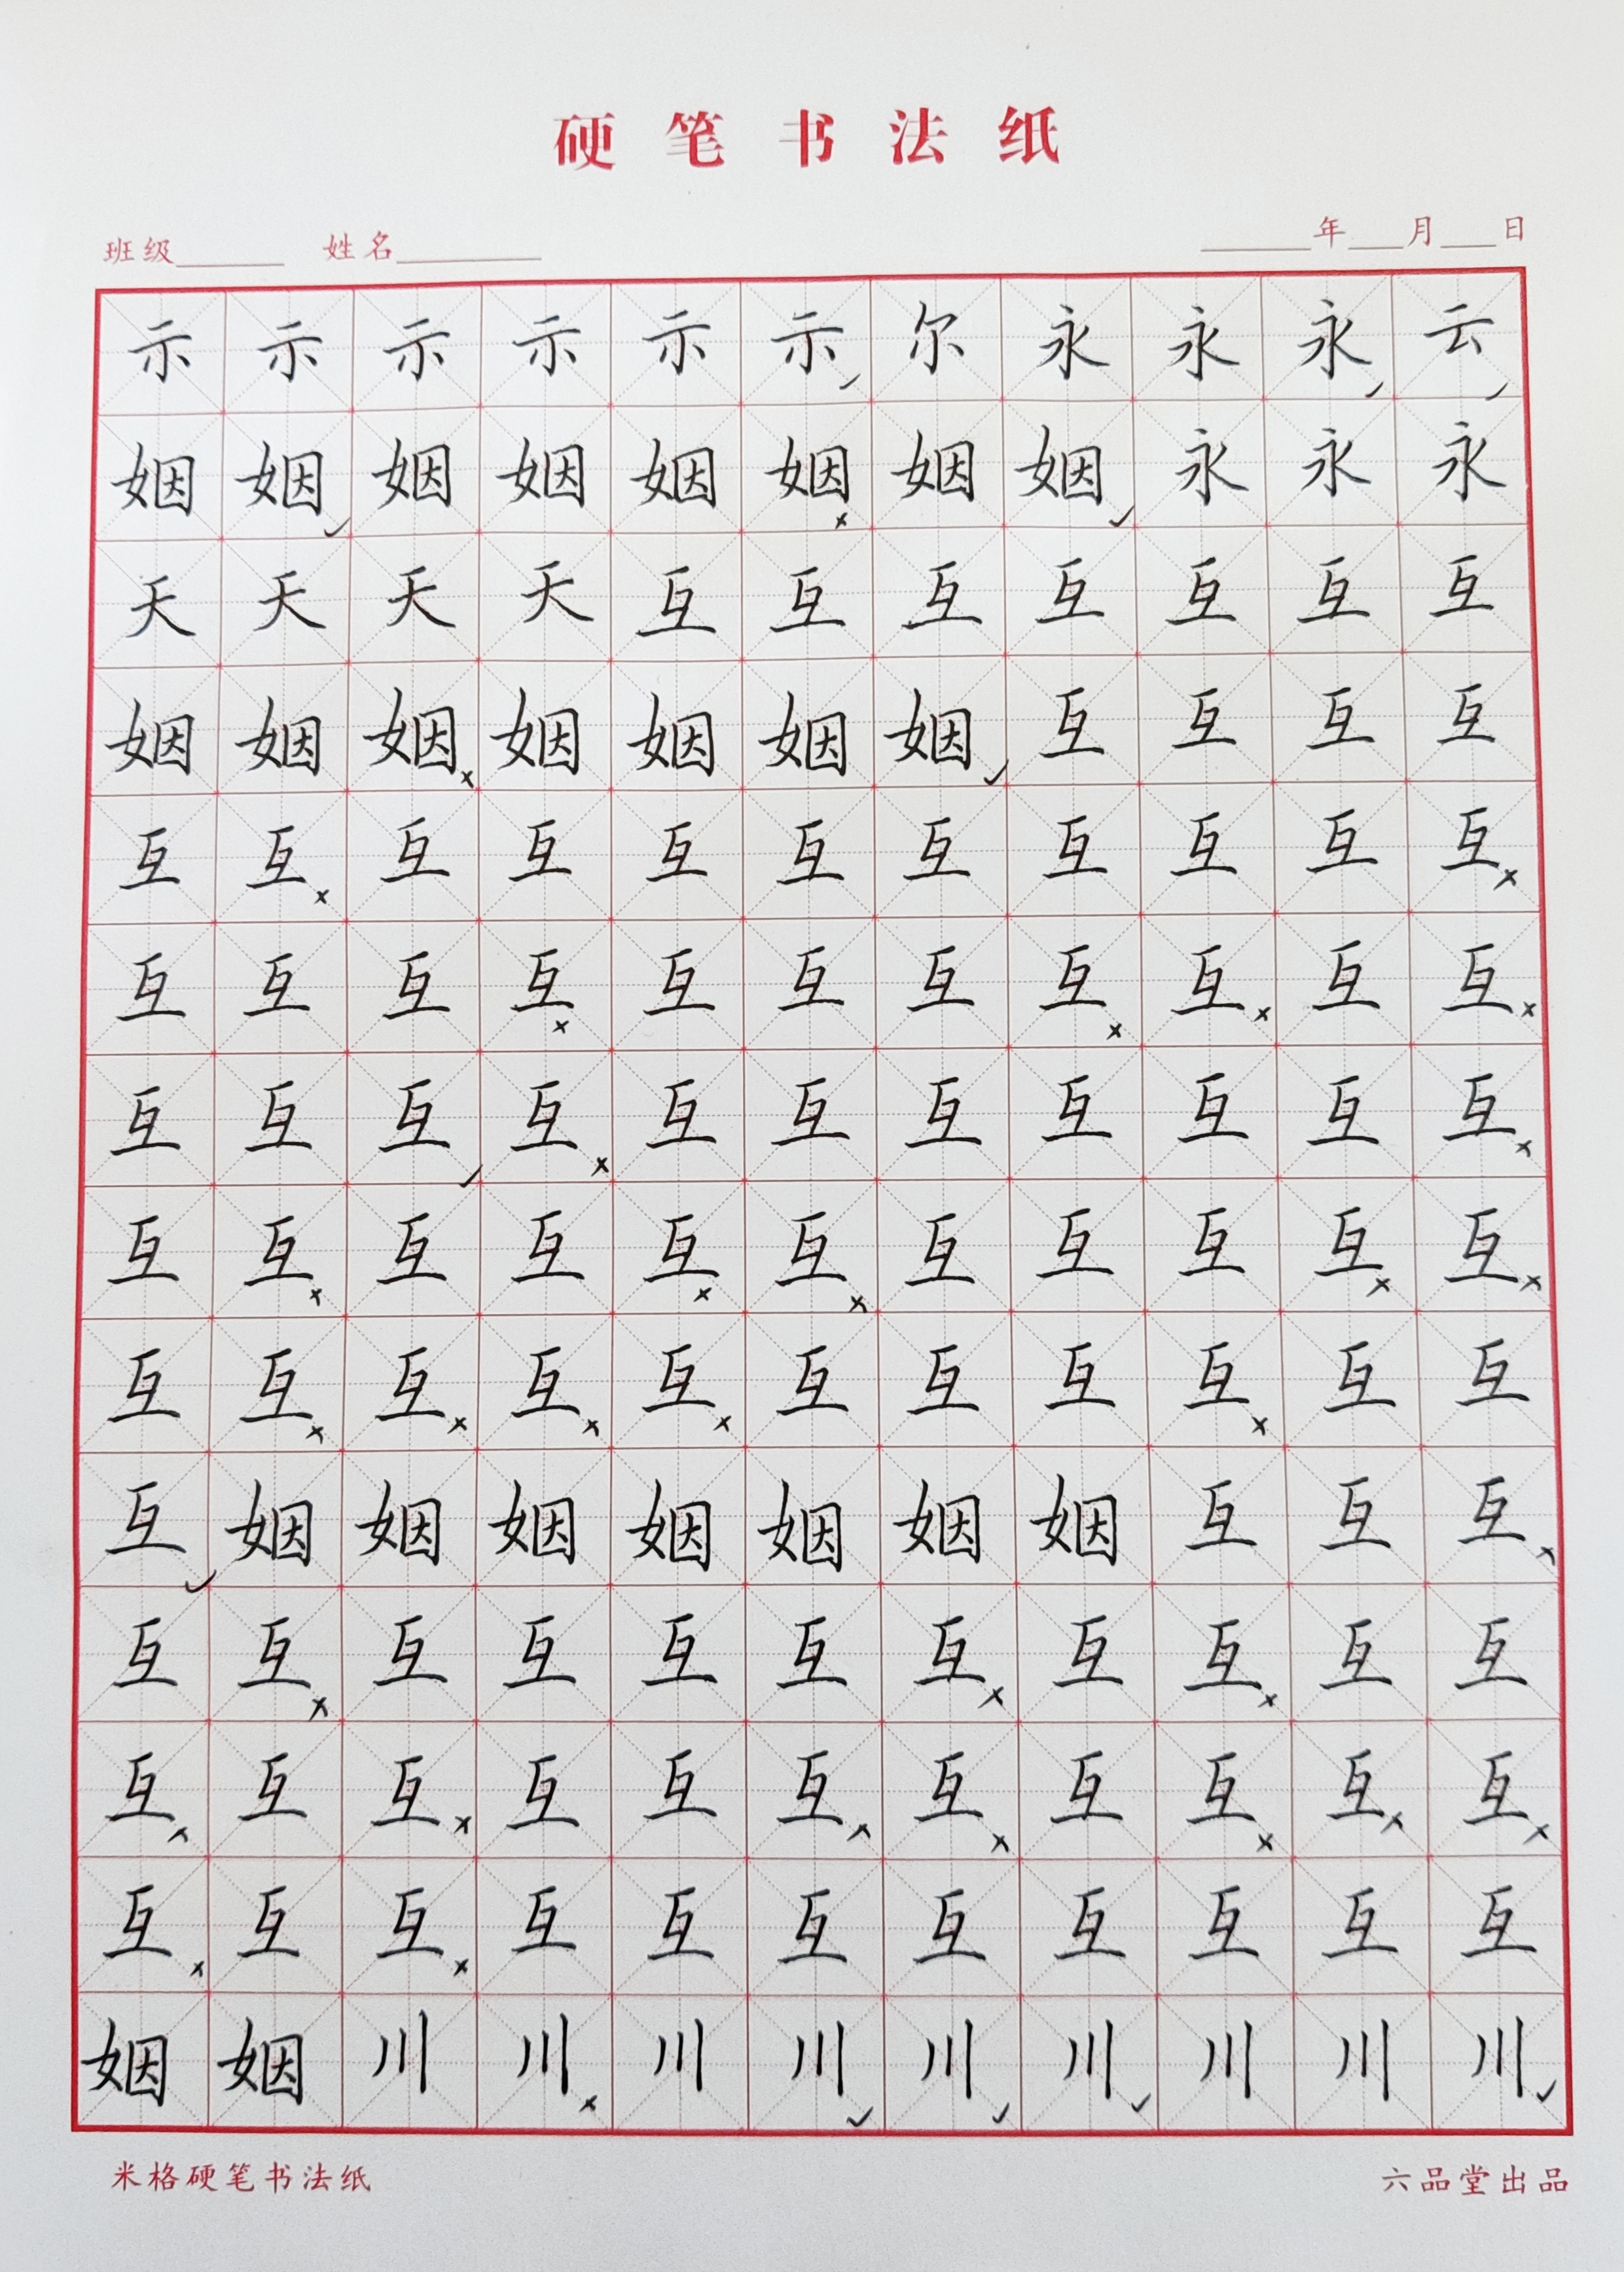 硬笔书法纸
班级 姓名 年 月 日
示示示示示示尔永永永云
姻姻姻姻姻姻姻姻永永永
天天天天互互互互互互互
姻姻姻姻姻姻姻互互互互
互互互互互互互互互互互
互互互互互互互互互互互
互互互互互互互互互互互
互互互互互互互互互互互
互互互互互互互互互互互
互姻姻姻姻姻姻姻互互互
互互互互互互互互互互互
互互互互互互互互互互互
互互互互互互互互互互互
姻姻川川川川川川川川川
米格硬笔书法纸 六品堂出品